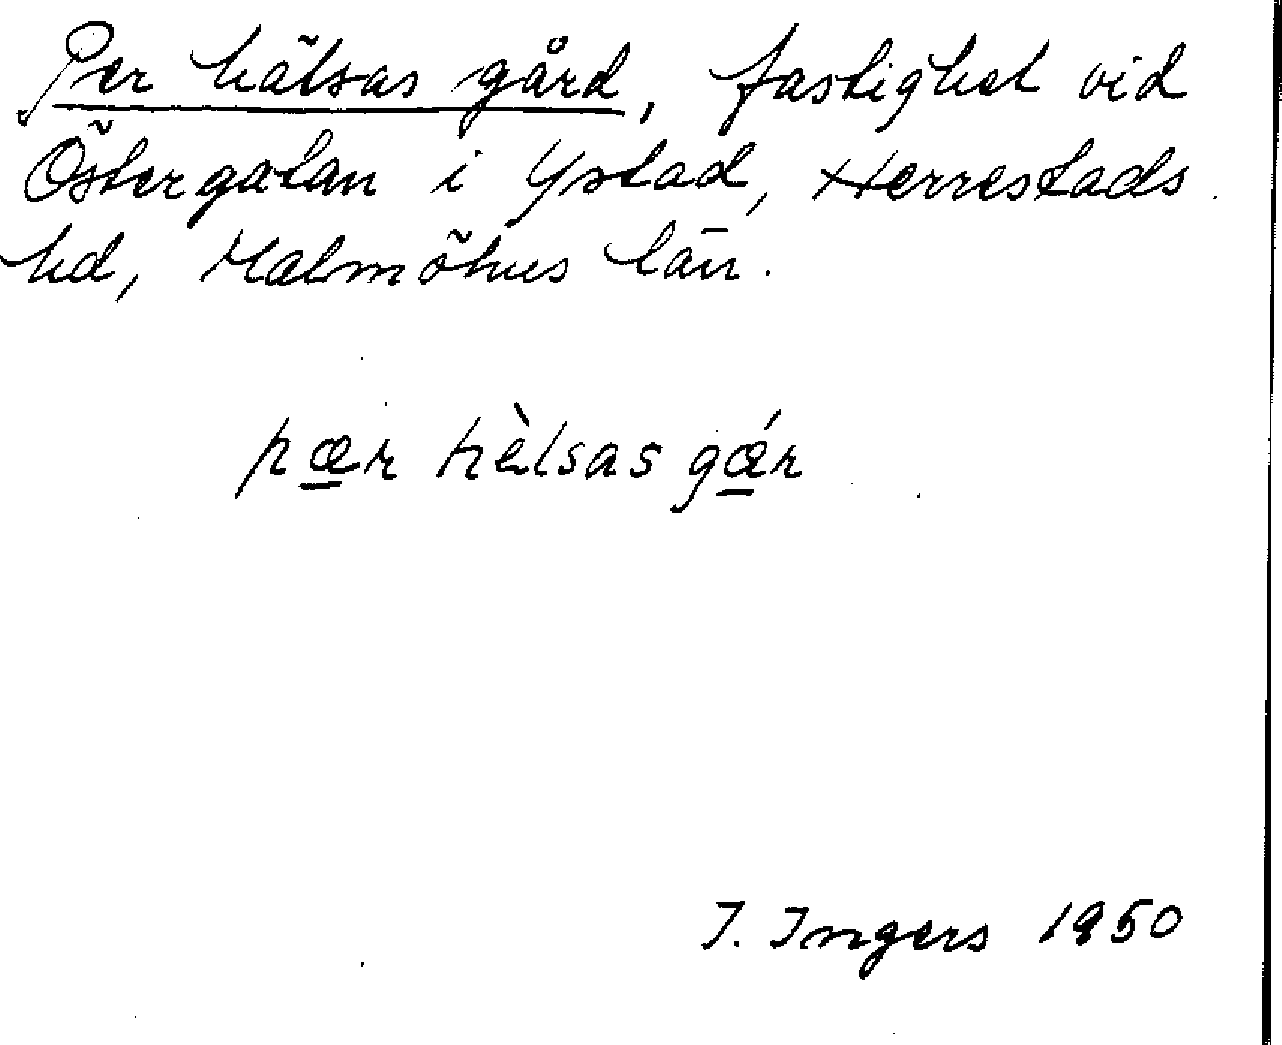 Per hälsas gård, fastighet vid
Östergatan i Ystad, Herrestads
hd, Malmöhus län.
pœ̲r hèlsas gœ̲́r
I. Ingers 1950